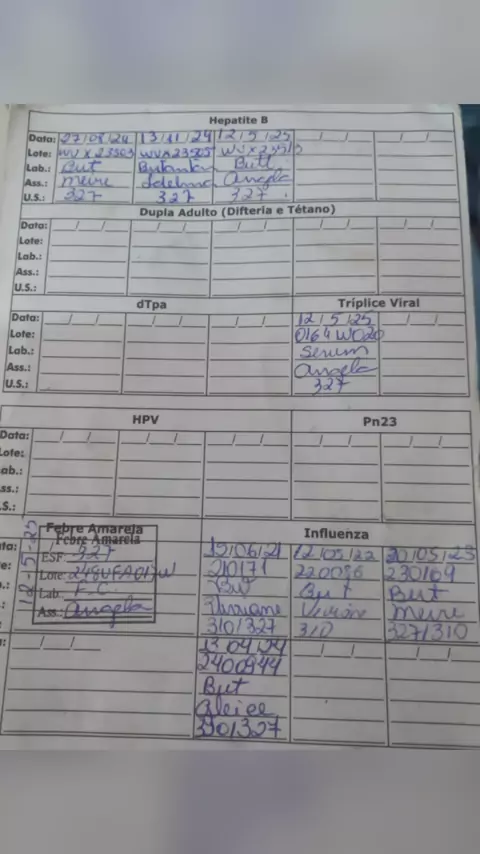 Hepatite B
Data: 27/08/24 13/11/24 12/5/25 / / / /
Lote: WVX23503 WVA23505
Lab.: But Butantan But
Ass.: Meire Edelma Angela
U.S.: 327 327 327
Dupla Adulto (Difteria e Tétano)
Data: / / / / / / / / / /
Lote:
Lab.:
Ass.:
U.S.:
dTpa Tríplice Viral
Data: / / / / / / 12/5/25 / /
Lote: 0164W020
Lab.: Serum
Ass.: Angela
U.S.: 327
HPV Pn23
Data: / / / / / / / / / /
Lote:
ab.:
ss.:
.S.:
Febre Amarela Influenza
Febre Amarela
ESF: 327
Lote:
Lab.: F.C.
Ass.: Angela
15/06/21 12/05/22 20/05/23
210171 220096 230169
But But But
Meire
310/327 310 327/310
/ / 13/04/24 / / / /
2400944
But
Gleice
390/327